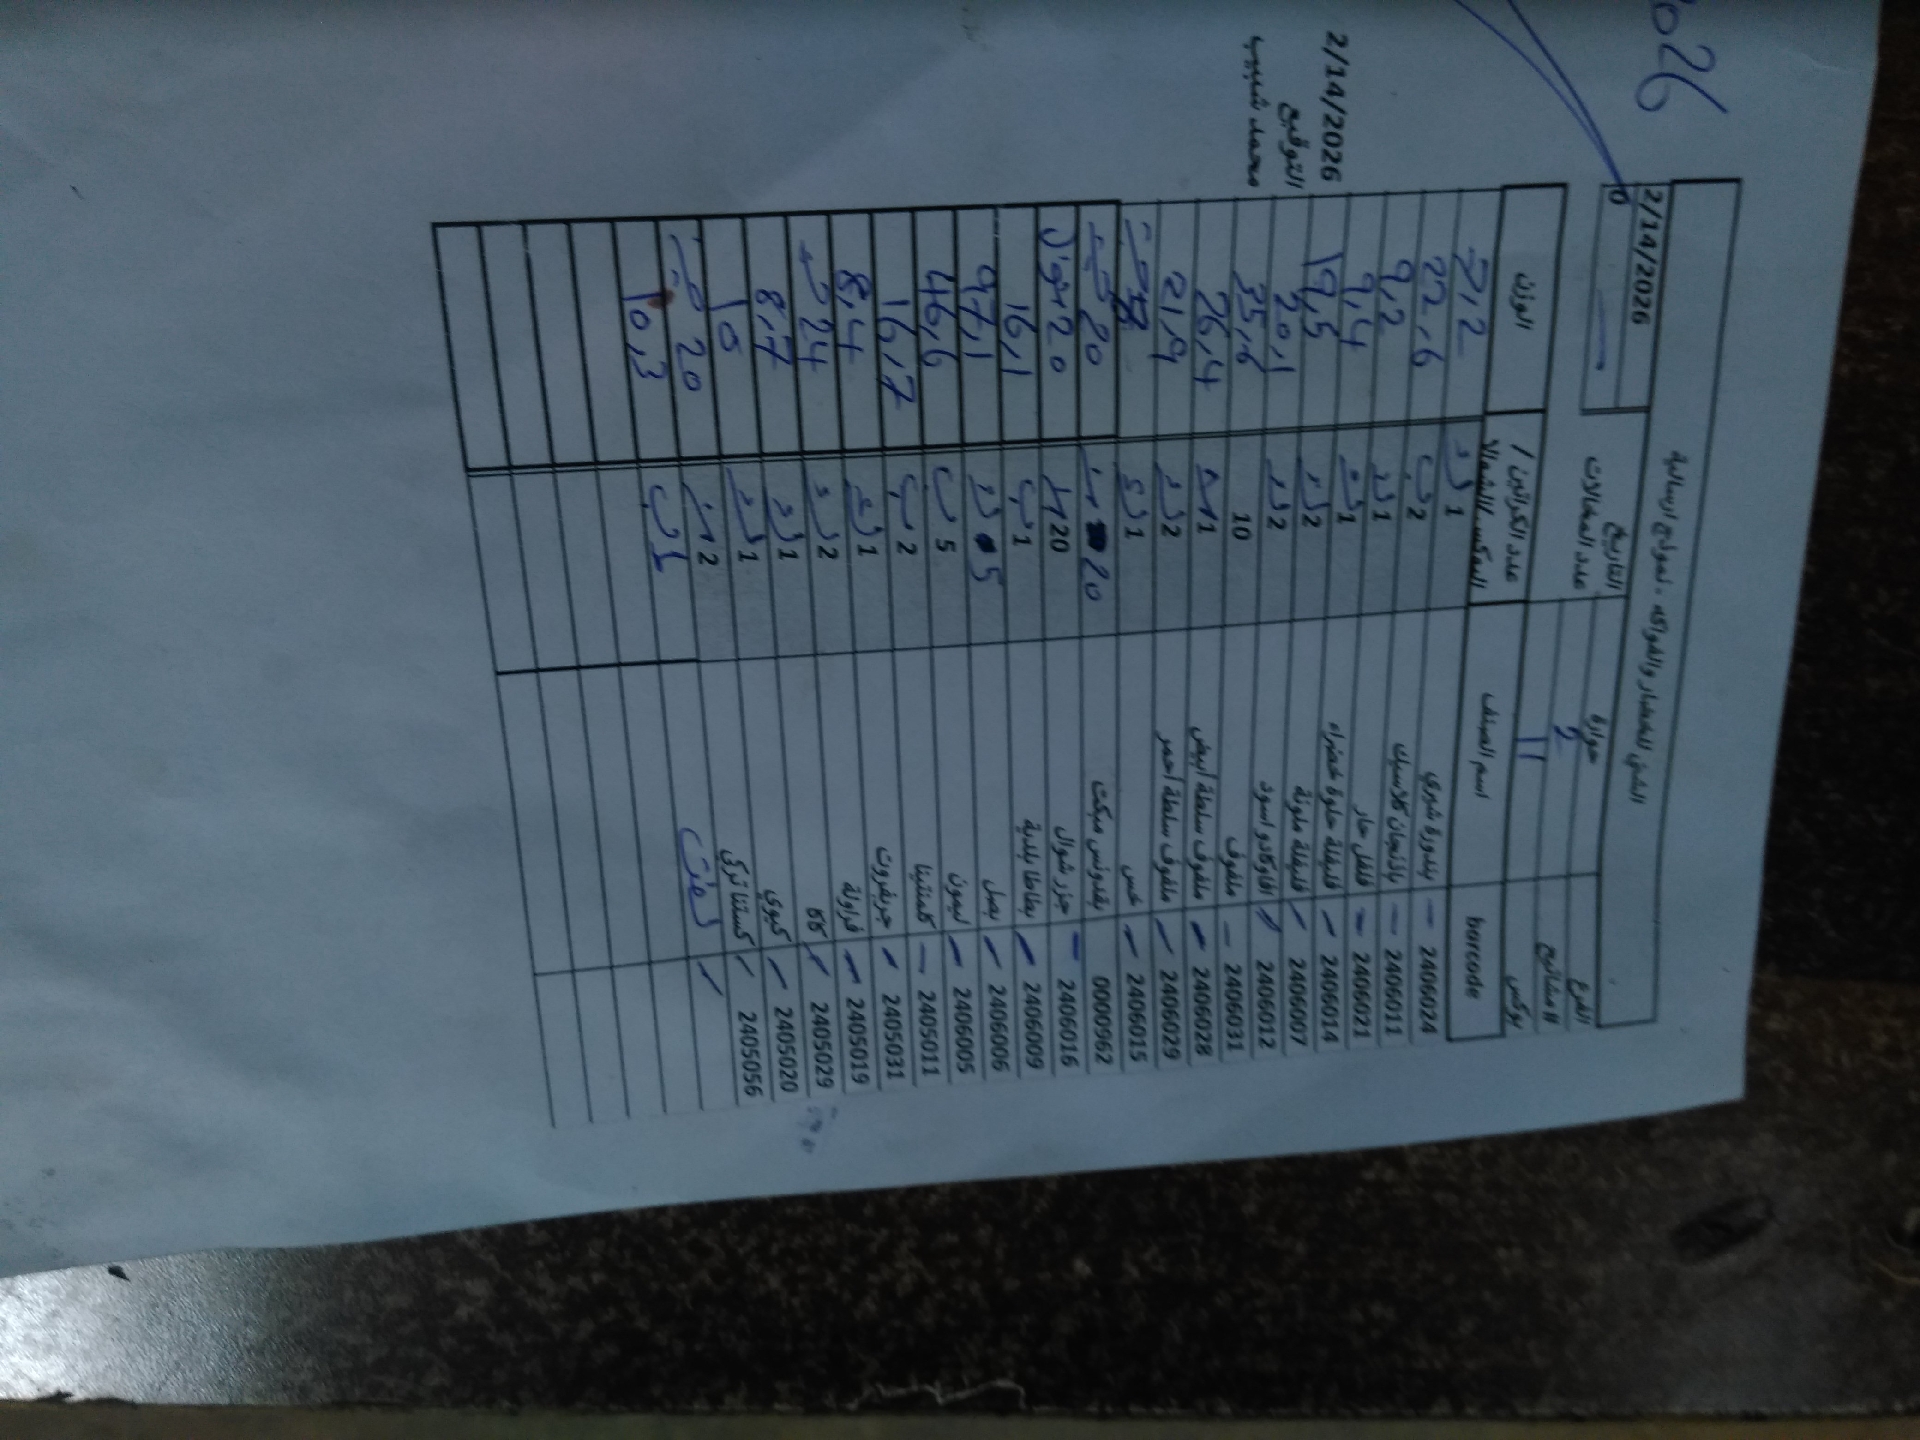 2026
الشني للخضار والفواكه - نموذج ارسالية
الفرع حوارة التاريخ 2/14/2026
# مشاتيح 2 عدد المحالات 0
بوكس 11
barcode اسم الصنف عدد الكراتين / البوكس / الشوالات الوزن
2406024 بندورة شيري 1 7,2
2406011 باذنجان كلاسيك 2 ب 22,6
2406021 فلفل حار 1 9,2
2406014 فليفلة حلوة خضراء 1 9,4
2406007 فليفلة ملونة 2 19,5
2406012 افوكادو اسود 2 20,1
2406031 ملفوف 10 35,6
2406028 ملفوف سلطة ابيض 1 26,4
2406029 ملفوف سلطة احمر 2 21,9
2406015 خس 1
0000962 بقدونس مبكت 20 20
2406016 جزر شوال 20 20
2406009 بطاطا بلدية 1 ب 16,1
2406006 بصل 5 97,1
2406005 ليمون 5 ب 46,6
2405011 كلمنتينا 2 ب 16,7
2405031 جريفروت 1 8,4
2405019 فراولة 2 24
2405029 كاكا 1 8,7
2405020 كيوي 1 10
2405056 كستنا تركي 2 20
لفت 1 ب 10,3
2/14/2026
التوقيع
محمد شبيب